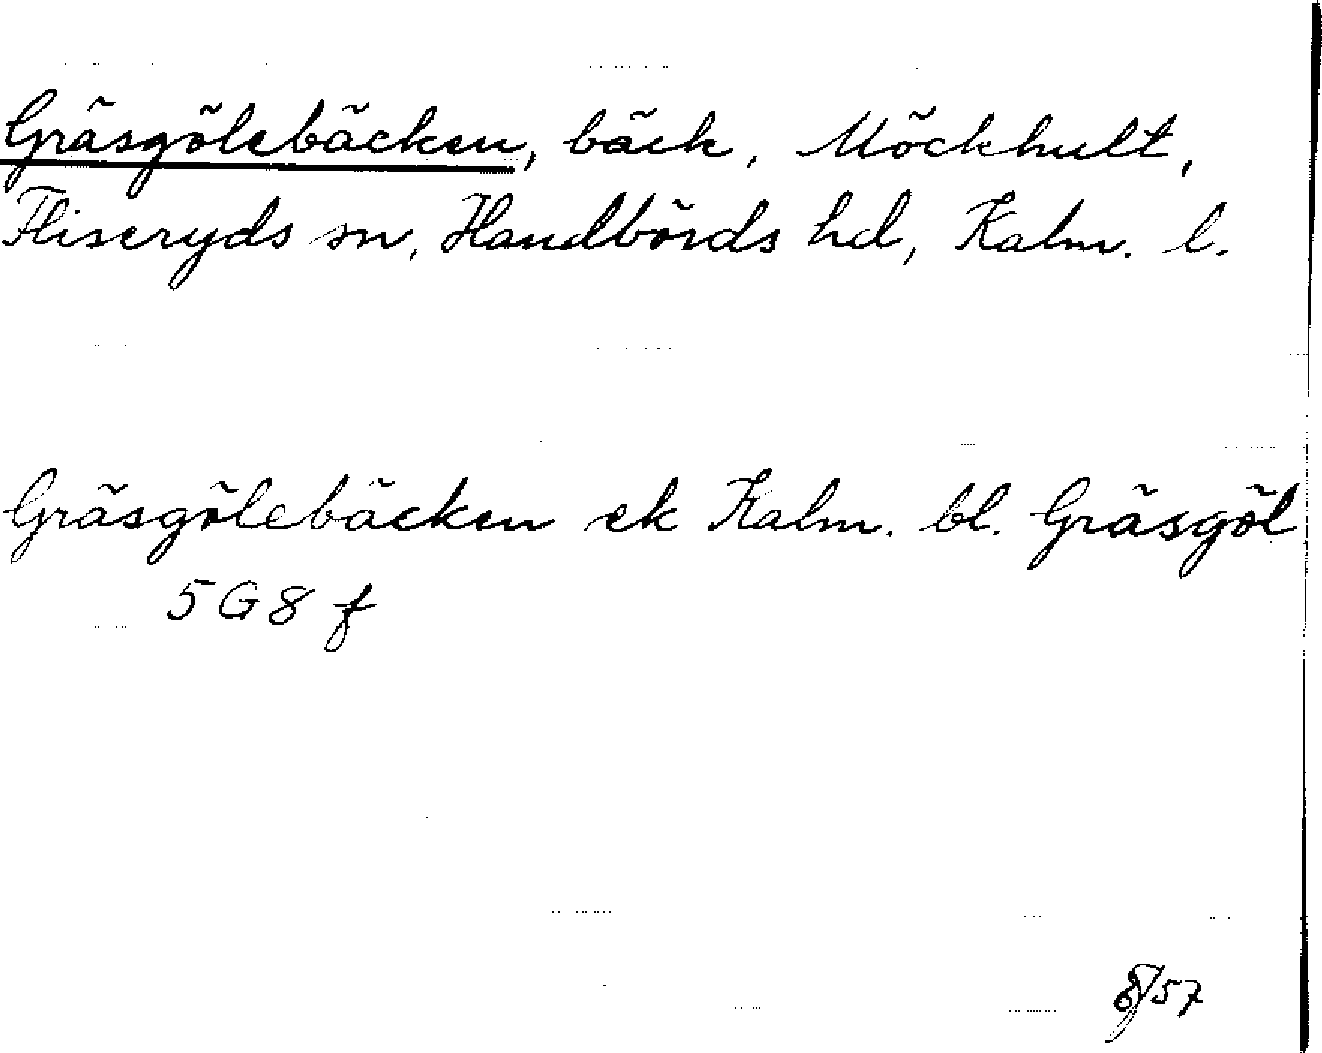 Gräsgölebäcken, bäck, Möckhult,
Fliseryds sn, Handbörds hd, Kalm. l.
Gräsgölebäcken ek Kalm. bl. Gräsgöl
5 G 8 f
8/57